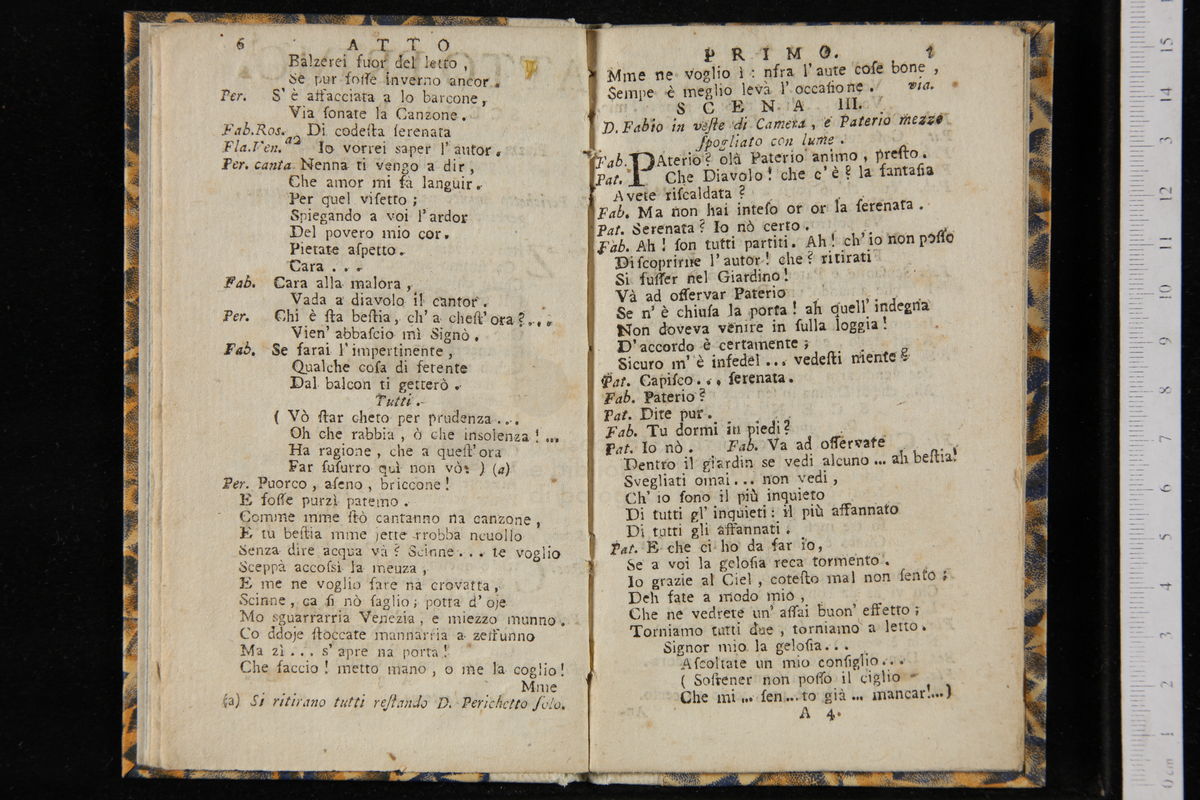 6 ATTO
Balzerei fuor del letto,
Se pur foſſe inverno ancor.
Per. S'è affacciata a lo barcone,
Via ſonate la Canzone.
Fab.Ros. Di codeſta ſerenata
Fla.Ven. a2 Io vorrei ſaper l'autor.
Per. canta Nenna ti vengo a dir,
Che amor mi fa languir.
Per quel viſetto;
Spiegando a voi l'ardor
Del povero mio cor.
Pietate aſpetto.
Cara ...
Fab. Cara alla malora,
Vada a diavolo il cantor.
Per. Chi è ſta beſtia, ch'a cheſt'ora?...
Vien' abbaſcio mì Signò.
Fab. Se farai l'impertinente,
Qualche coſa di fetente
Dal balcon ti getterò.
Tutti.
( Vò ſtar cheto per prudenza ...
Oh che rabbia, ò che inſolenza!...
Ha ragione, che a queſt'ora
Far ſuſurro quì non vò: ) (a)
Per. Puorco, aſeno, briccone!
E foſſe purzì patemo.
Comme mme ſtò cantanno na canzone,
E tu beſtia mme jette rrobba ncuollo
Senza dire acqua và? Scinne... te voglio
Sceppà accoſsì la meuza,
E me ne voglio fare na crovatta,
Scinne, ca ſi nò ſaglio; potta d'oje
Mo sguarrarria Venezia, e miezzo munno.
Co ddoje ſtoccate mannarria a zeffunno
Ma zì... s'apre na porta!
Che faccio! metto mano, o me la coglio!
Mme
(a) Si ritirano tutti reſtando D. Perichetto ſolo.
PRIMO. 7
Mme ne voglio ì: nfra l'aute coſe bone,
Sempe è meglio levà l'occaſione. via.
SCENA III.
D. Fabio in veſte di Camera, e Paterio mezzo
ſpogliato con lume.
Fab. PAterio? olà Paterio animo, preſto.
Pat. Che Diavolo! che c'è? la fantaſia
Avete riſcaldata?
Fab. Ma non hai inteſo or or la ſerenata.
Pat. Serenata? Io nò certo.
Fab. Ah! ſon tutti partiti. Ah! ch'io non poſſo
Diſcoprirne l'autor! che? ritirati
Si fuſſer nel Giardino!
Và ad oſſervar Paterio
Se n'è chiuſa la porta! ah quell'indegna
Non doveva venire in ſulla loggia!
D'accordo è certamente;
Sicuro m'è infedel... vedeſti niente?
Pat. Capiſco... ſerenata.
Fab. Paterio?
Pat. Dite pur.
Fab. Tu dormi in piedi?
Pat. Io nò. Fab. Va ad oſſervate
Dentro il giardin se vedi alcuno... ah beſtia!
Svegliati omai... non vedi,
Ch'io ſono il più inquieto
Di tutti gl'inquieti: il più affannato
Di tutti gli affannati.
Pat. E che ci ho da far io,
Se a voi la geloſia reca tormento.
Io grazie al Ciel, coteſto mal non ſento;
Deh fate a modo mio,
Che ne vedrete un'aſſai buon'effetto;
Torniamo tutti due, torniamo a letto.
Signor mio la geloſia...
Aſcoltate un mio conſiglio...
( Soſtener non poſſo il ciglio
Che mi... ſen...to già... mancar!...)
A 4.